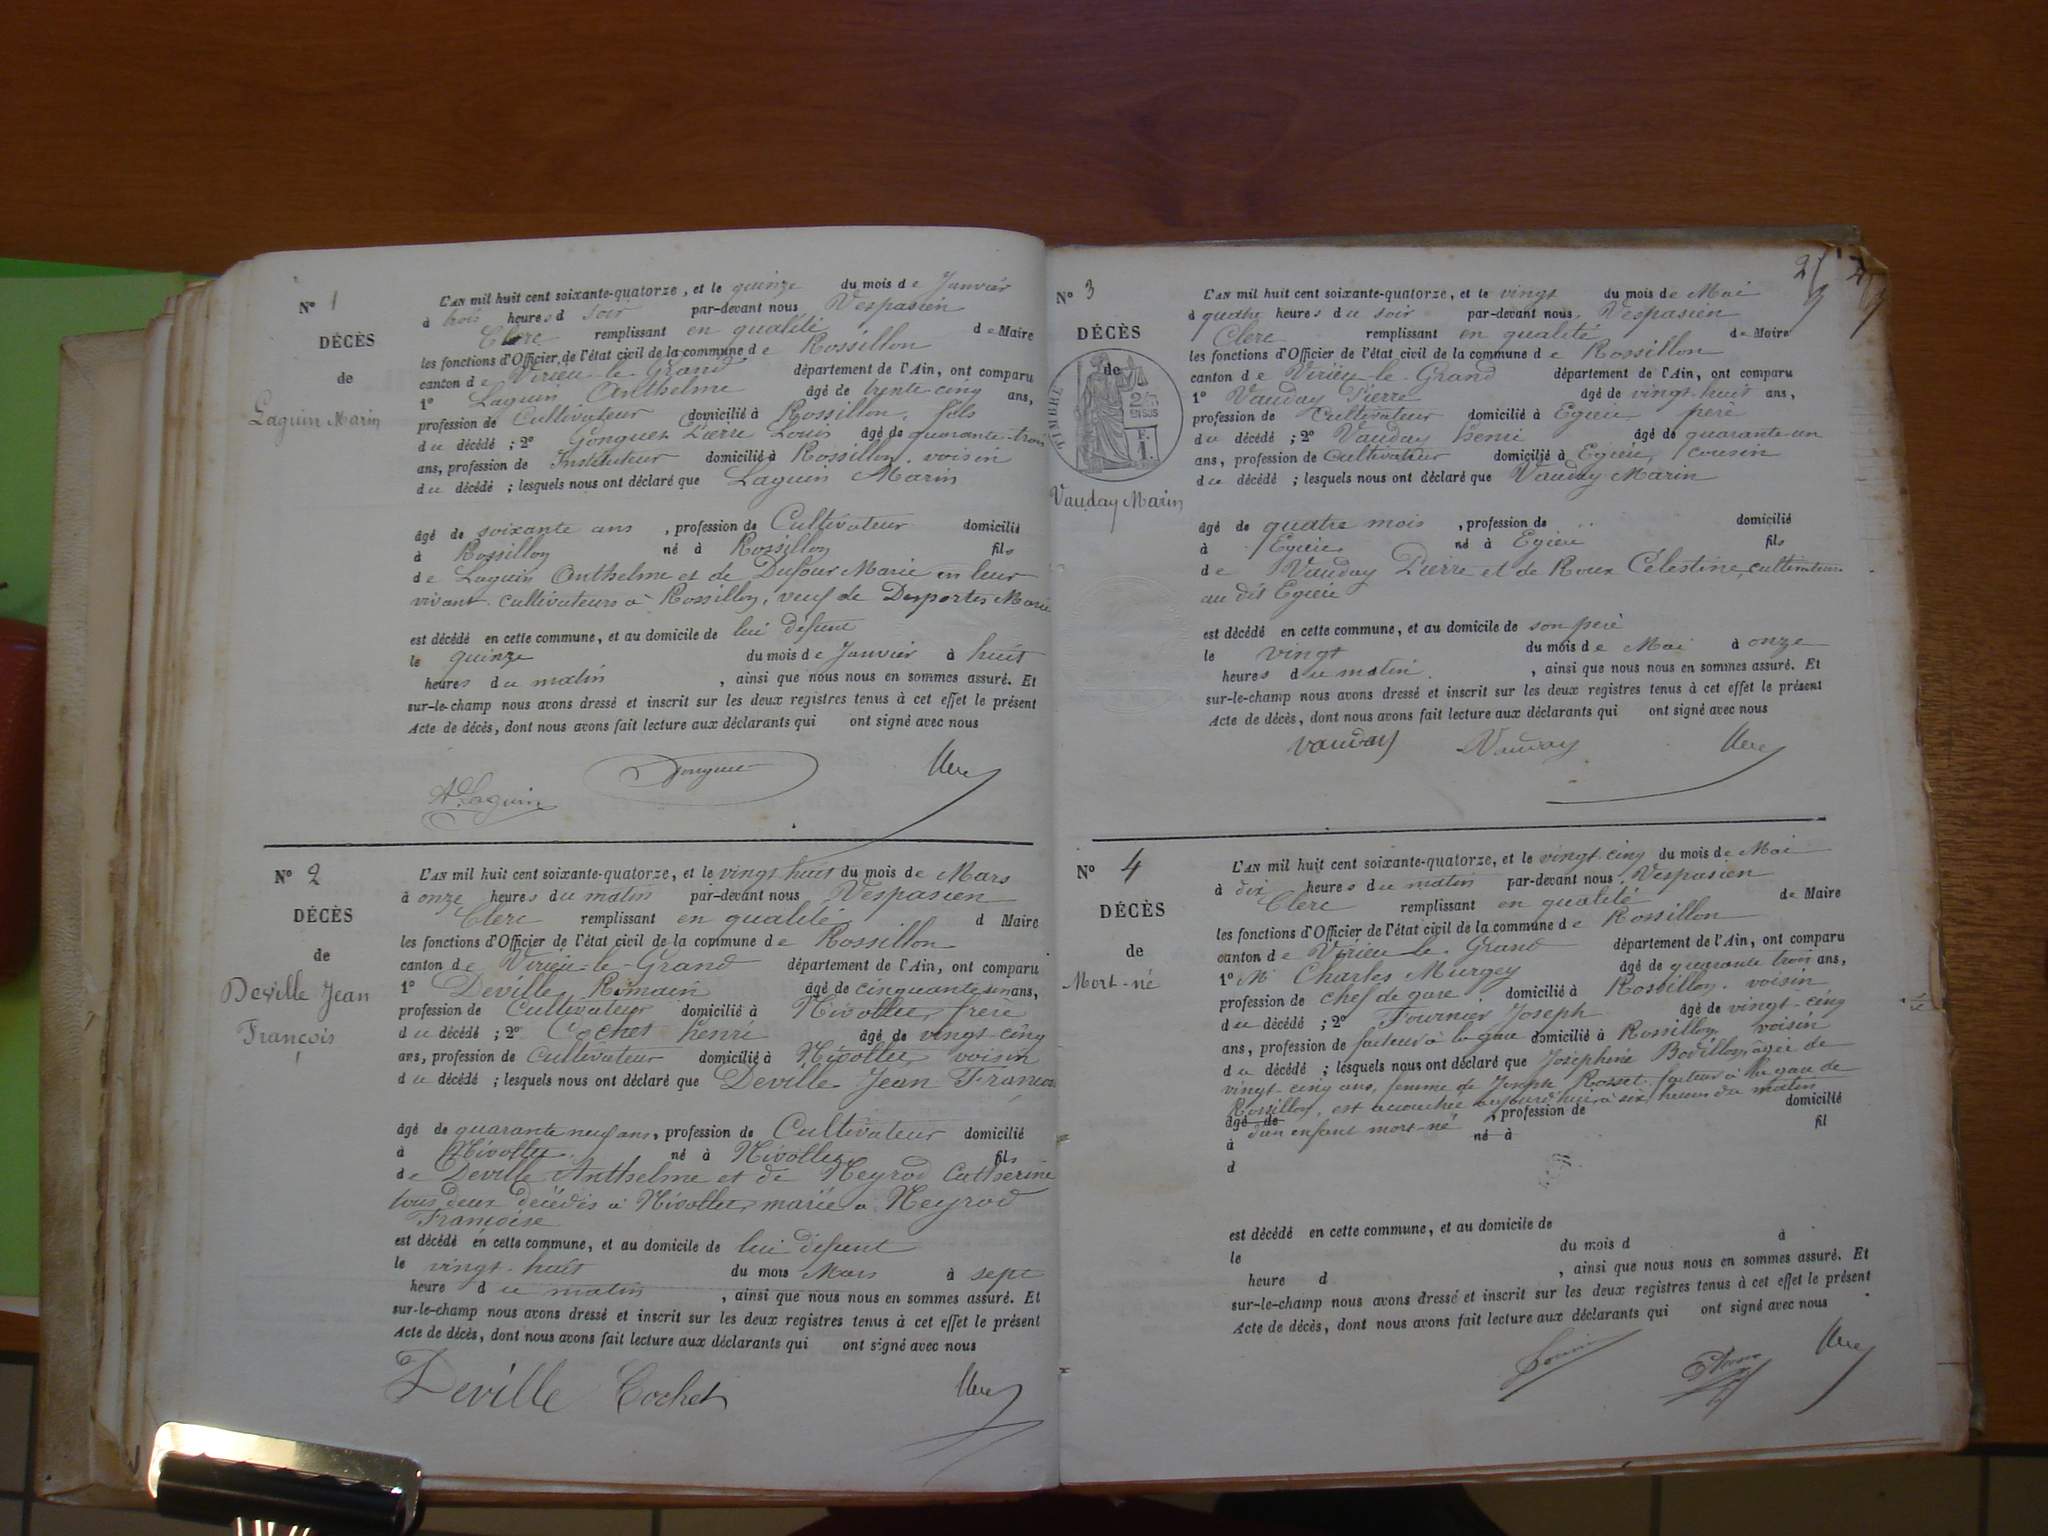 N° 1
DÉCÈS
de
Laguin Marin
L'AN mil huit cent soixante-quatorze, et le quinze du mois de Janvier
à trois heures d soir par-devant nous Vespasien
Clerc remplissant en qualité de Maire
les fonctions d'Officier de l'état civil de la commune de Rossillon
canton de Virieu-le-Grand département de l'Ain, ont comparu
1° Laguin Anthelme âgé de trente-cinq ans,
profession de Cultivateur domicilié à Rossillon, fils
du décédé ; 2° Gonguet Pierre Louis âgé de quarante-trois
ans, profession de Instituteur domicilié à Rossillon, voisin
du décédé ; lesquels nous ont déclaré que Laguin Marin
âgé de soixante ans, profession de Cultivateur domicilié
à Rossillon né à Rossillon fils
de Laguin Anthelme et de Dufour Marie en leur
vivant cultivateurs à Rossillon, veuf de Desportes Marie
est décédé en cette commune, et au domicile de lui défunt
le quinze du mois de Janvier à huit
heures du matin, ainsi que nous nous en sommes assuré. Et
sur-le-champ nous avons dressé et inscrit sur les deux registres tenus à cet effet le présent
Acte de décès, dont nous avons fait lecture aux déclarants qui ont signé avec nous
A. Laguin Gonguet Clerc
N° 2
DÉCÈS
de
Deville Jean
François
L'AN mil huit cent soixante-quatorze, et le vingt huit du mois de Mars
à onze heures du matin par-devant nous Vespasien
Clerc remplissant en qualité d Maire
les fonctions d'Officier de l'état civil de la commune de Rossillon
canton de Virieu-le-Grand département de l'Ain, ont comparu
1° Deville Romain âgé de cinquante un ans,
profession de Cultivateur domicilié à Nivollet, frère
du décédé ; 2° Cochet Henri âgé de vingt-cinq
ans, profession de Cultivateur domicilié à Nivollet, voisin
du décédé ; lesquels nous ont déclaré que Deville Jean François
âgé de quarante neuf ans, profession de Cultivateur domicilié
à Nivollet né à Nivollet fils
de Deville Anthelme et de Neyrod Catherine
tous deux décédés à Nivollet, marié à Neyrod
Françoise
est décédé en cette commune, et au domicile de lui défunt
le vingt-huit du mois Mars à sept
heure du matin, ainsi que nous nous en sommes assuré. Et
sur-le-champ nous avons dressé et inscrit sur les deux registres tenus à cet effet le présent
Acte de décès, dont nous avons fait lecture aux déclarants qui ont signé avec nous
Deville Cochet Clerc
2
N° 3
DÉCÈS
de
TIMBRE
EN SUS
Vauday Marin
L'AN mil huit cent soixante-quatorze, et le vingt du mois de Mai
à quatre heures du soir par-devant nous Vespasien
Clerc remplissant en qualité de Maire
les fonctions d'Officier de l'état civil de la commune de Rossillon
canton de Virieu-le-Grand département de l'Ain, ont comparu
1° Vauday Pierre âgé de vingt-huit ans,
profession de Cultivateur domicilié à Egieu, père
du décédé ; 2° Vauday Henri âgé de quarante-un
ans, profession de Cultivateur domicilié à Egieu, cousin
du décédé ; lesquels nous ont déclaré que Vauday Marin
âgé de quatre mois, profession de domicilié
à Egieu né à Egieu fils
de Vauday Pierre et de Roux Célestine, cultivateurs
au dit Egieu
est décédé en cette commune, et au domicile de son père
le vingt du mois de Mai à onze
heures du matin, ainsi que nous nous en sommes assuré. Et
sur-le-champ nous avons dressé et inscrit sur les deux registres tenus à cet effet le présent
Acte de décès, dont nous avons fait lecture aux déclarants qui ont signé avec nous
Vauday Vauday Clerc
N° 4
DÉCÈS
de
Mort-né
L'AN mil huit cent soixante-quatorze, et le vingt-cinq du mois de Mai
à dix heures du matin par-devant nous Vespasien
Clerc remplissant en qualité de Maire
les fonctions d'Officier de l'état civil de la commune de Rossillon
canton de Virieu-le-Grand département de l'Ain, ont comparu
1° M Charles Murgey âgé de quarante trois ans,
profession de chef de gare domicilié à Rossillon, voisin
du décédé ; 2° Fournier Joseph âgé de vingt-cinq
ans, profession de facteur à la gare domicilié à Rossillon, voisin
du décédé ; lesquels nous ont déclaré que Joséphine Bovillon, âgée de
vingt-cinq ans, femme de Joseph Rosset, facteur à la gare de
Rossillon, est accouchée aujourd'hui à six heures du matin
âgé de d'un enfant mort-né, profession de domicilié
à né à fil
d
est décédé en cette commune, et au domicile de
le du mois d à
heure d, ainsi que nous nous en sommes assuré. Et
sur-le-champ nous avons dressé et inscrit sur les deux registres tenus à cet effet le présent
Acte de décès, dont nous avons fait lecture aux déclarants qui ont signé avec nous
Clerc